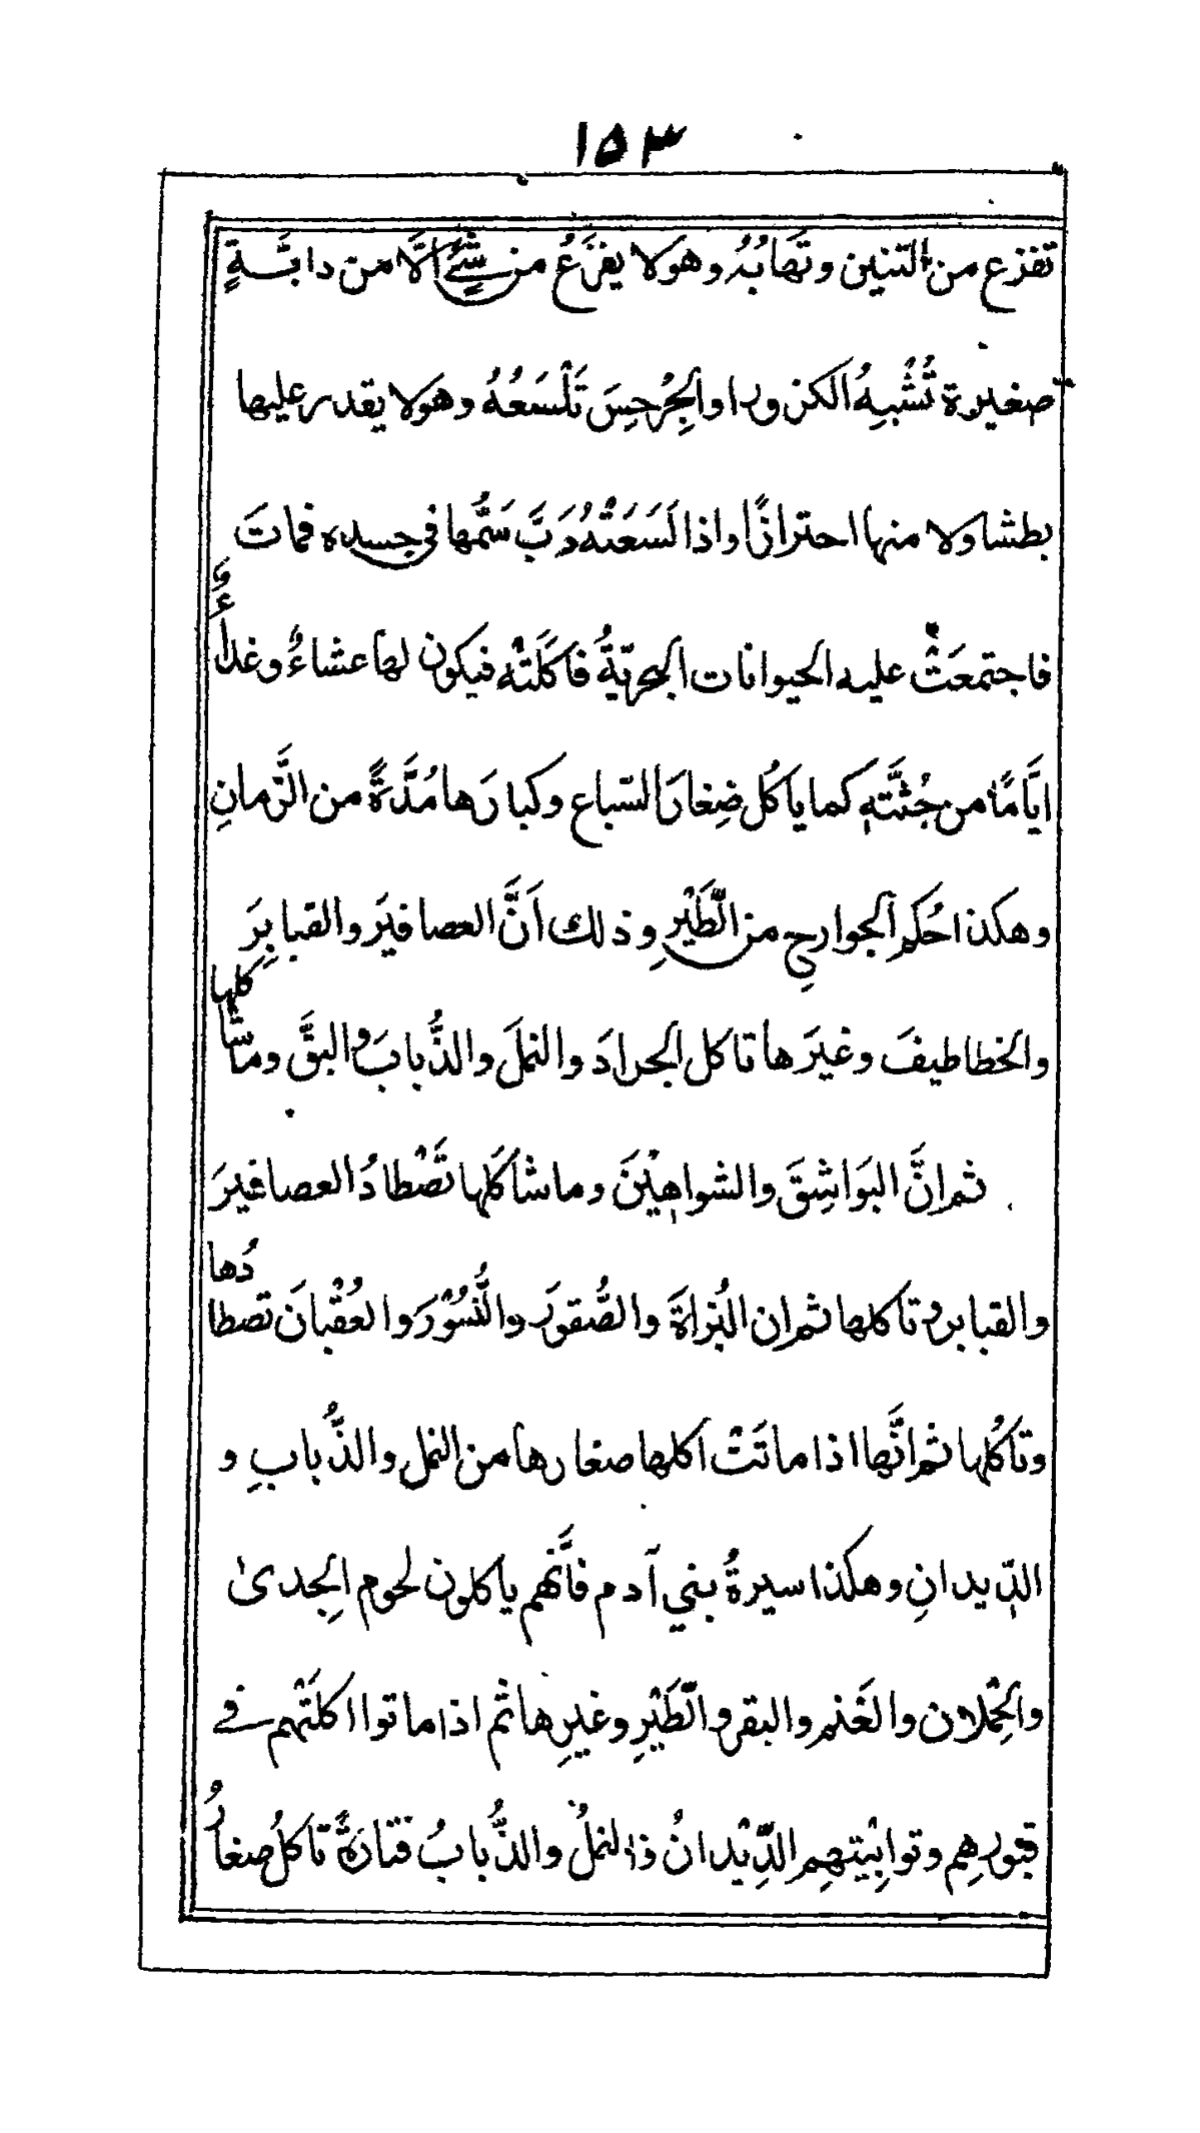 ١٥٣
تفزع من التنين وتَهَابُهُ وهو لا يفزَعُ من شَيْءٍ الَّا من دابَّةٍ
صغيرة تُشْبِهُ الكزورا والجِرْجِسَ تَلْسَعُهُ وهو لا يقدر عليها
بطشا ولا منها احترازًا واذا لَسَعَتْهُ دَبَّ سَمُّها في جسده فماتَ
فاجتمعَتْ عليه الحيوانات البحريّةُ فاكَلَتْه فيكون لها عشاءً وغداءً
ايَّامًا من جُثَّتِهٖ كما ياكُل ضِغارَ السّباع وكبارَها مُدَّةً من الزَّمانِ
وهكذا حُكم الجوارحِ من الطَّيْرِ وذلك اَنَّ العصافيرَ والقبابِرَ
والخطاطيفَ وغيرَها تاكل الجرادَ والنملَ والذُّبابَ والبقَّ وما شاكلها
ثم انَّ البَوَاشِقَ والشواهِيْنَ وما شاكَلَها تَصْطادُ العصافيرَ
والقبابر وتاكلها ثم ان البُزاةَ والصُّقورَ والنُّسُوْرَ والعُقْبانَ تصطادُها
وتاكُلها ثم انَّها اذا ماتَتْ اكلها صغارها من النمل والذُّبابِ و
الدِّيدانِ وهكذا سيرةُ بني آدم فاَنَّهم ياكلون لحوم الجِدىٰ
والحُمْلان والغَنم والبقر والطَّيْرِ وغيرِها ثم اذا ماتوا اكلَتْهم في
قبورِهِم وتوابِيْتِهِم الدِّيْدانُ والنملُ والذُّبابُ فتارَةً تاكلُ صغارُ